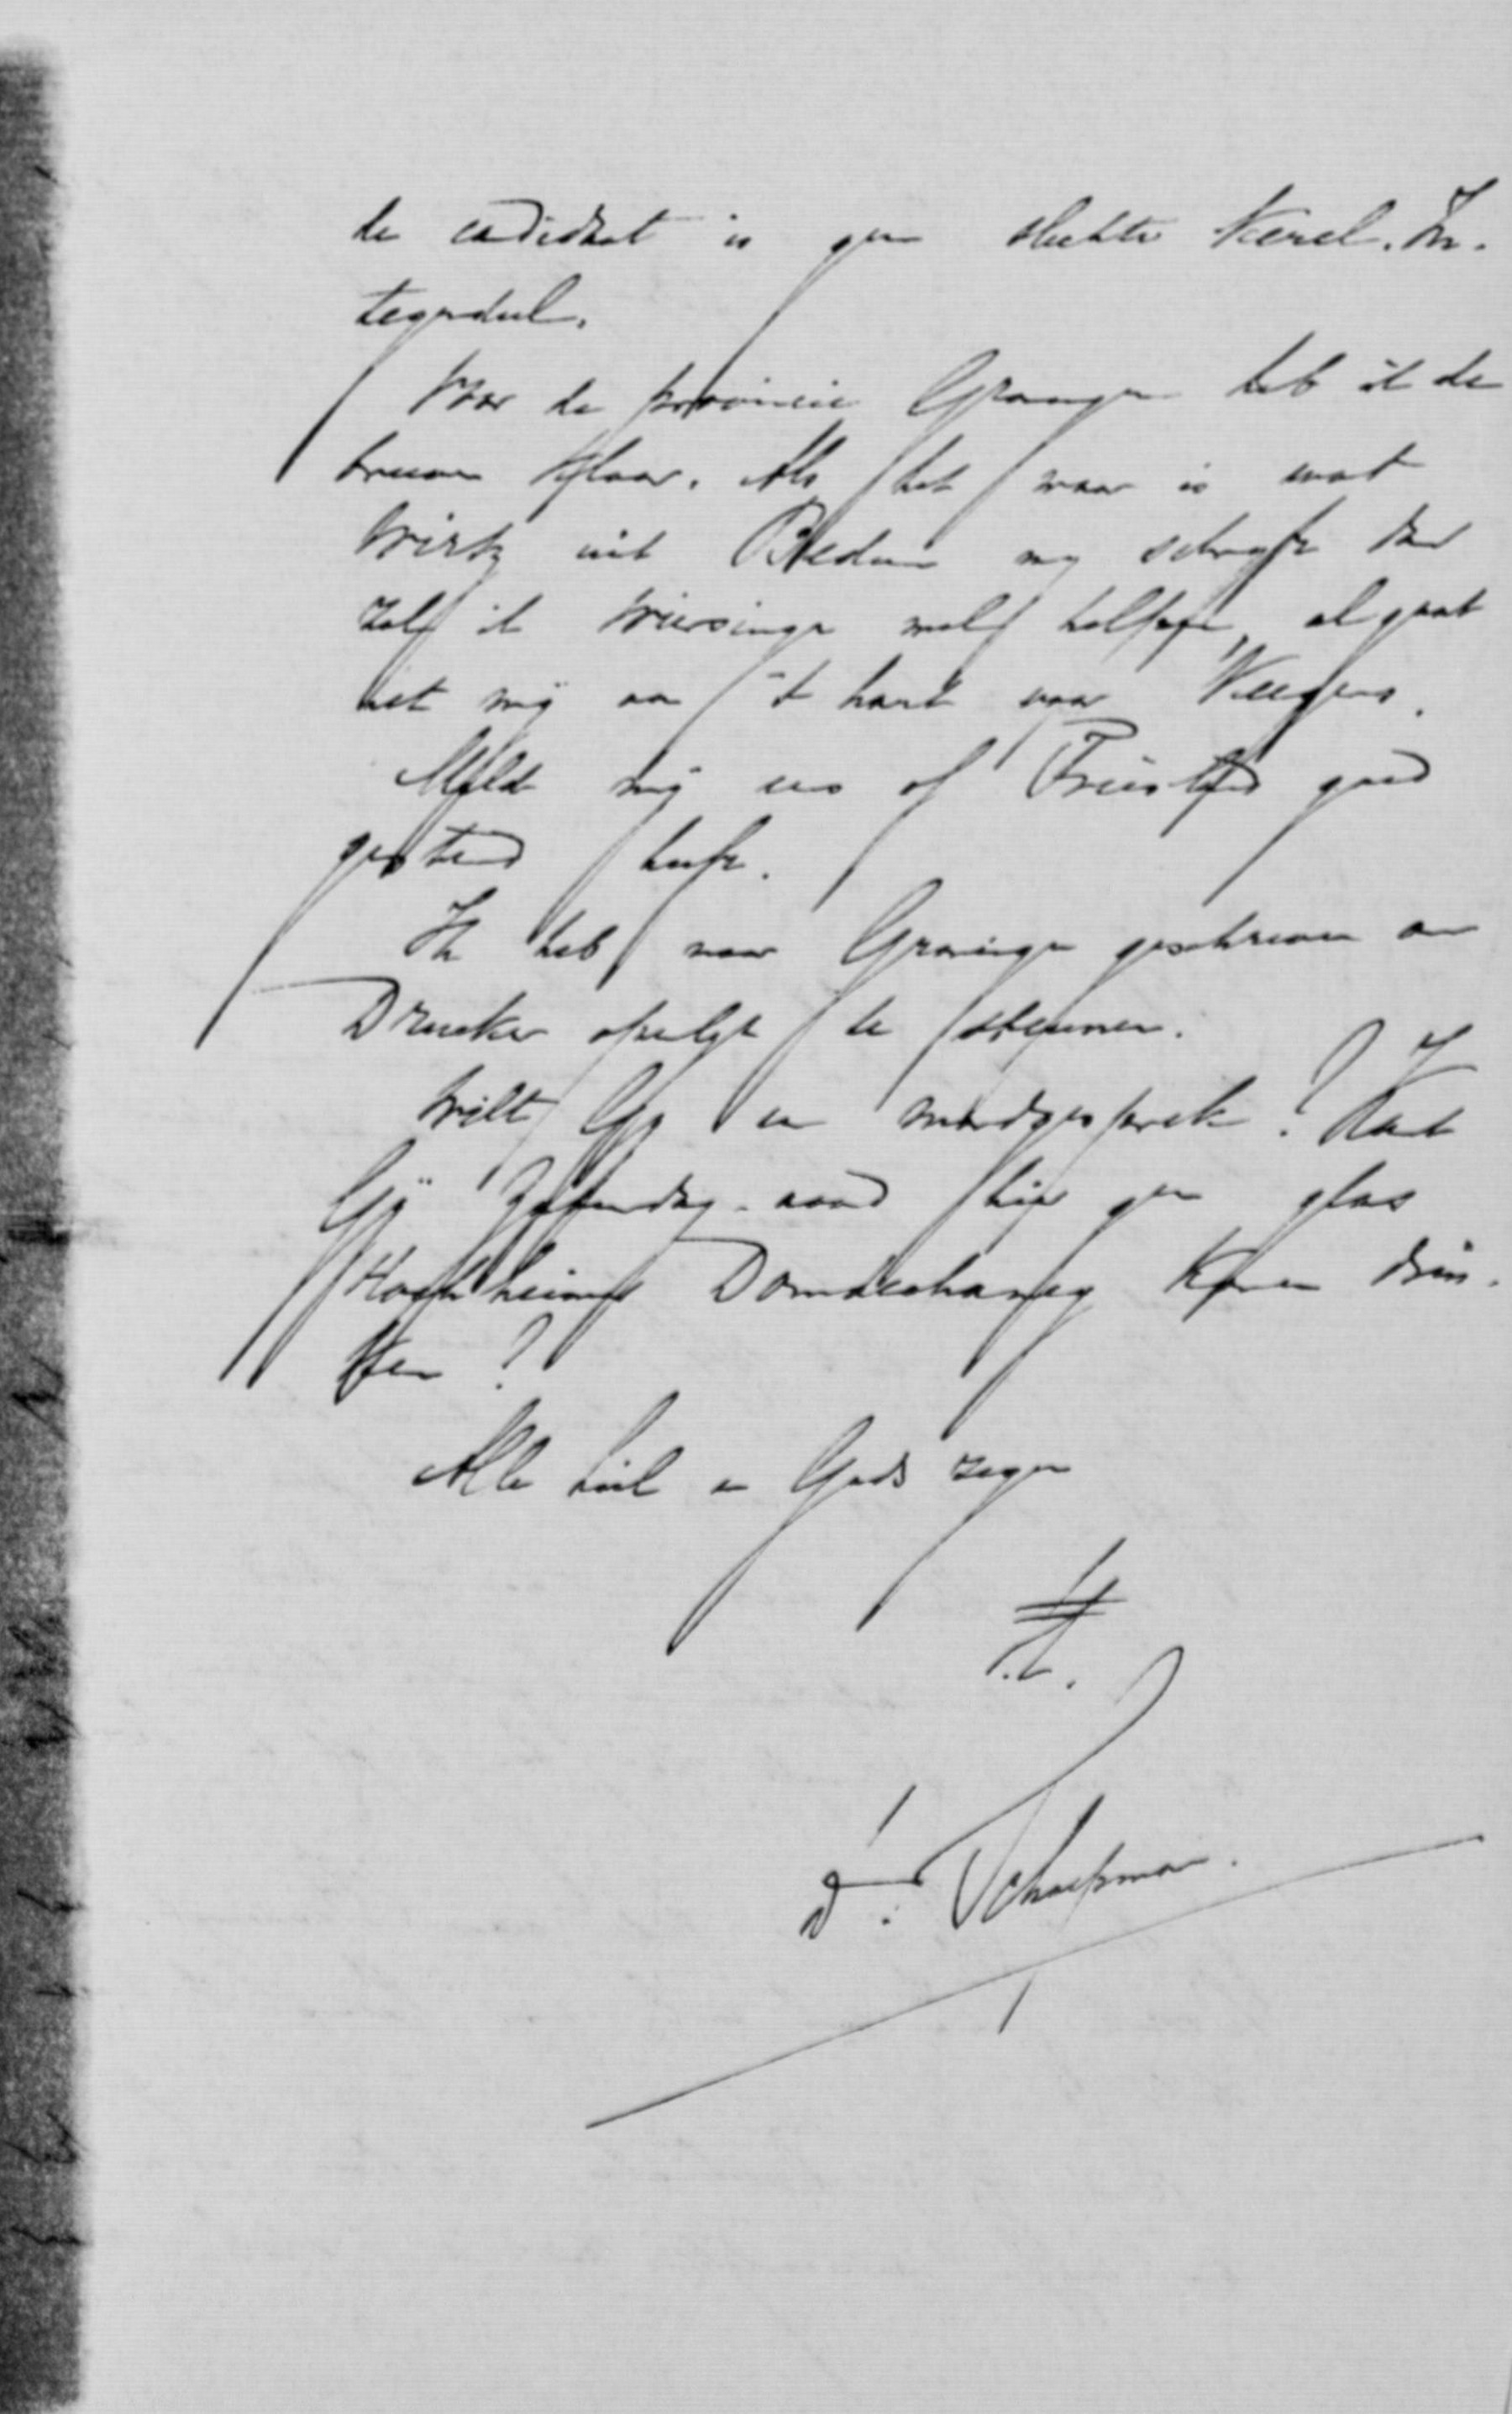 de candidaat is geen slechte kerel. In-
tegendeel.
Voor de provincie Groningen heb ik de
brieven klaar. Als het waar is wat
Wirtz uit Bedum mij schrijft dan
zal ik Wiersinga wel helpen, al gaat
het mij aan 't hart voor Veegens.
Meld mij eens of Truijstfed goed
gestemd heeft.
Ik heb naar Groningen geschreven om
Drucker te steunen.
Wilt Gij een mondgesprek? Kunt
Gij Zaterdag-avond hier een glas
Hochheimer Domdechaney komen drin-
ken?
Alle heil en Gods zegen
t.t.
Dr. Schaepman.